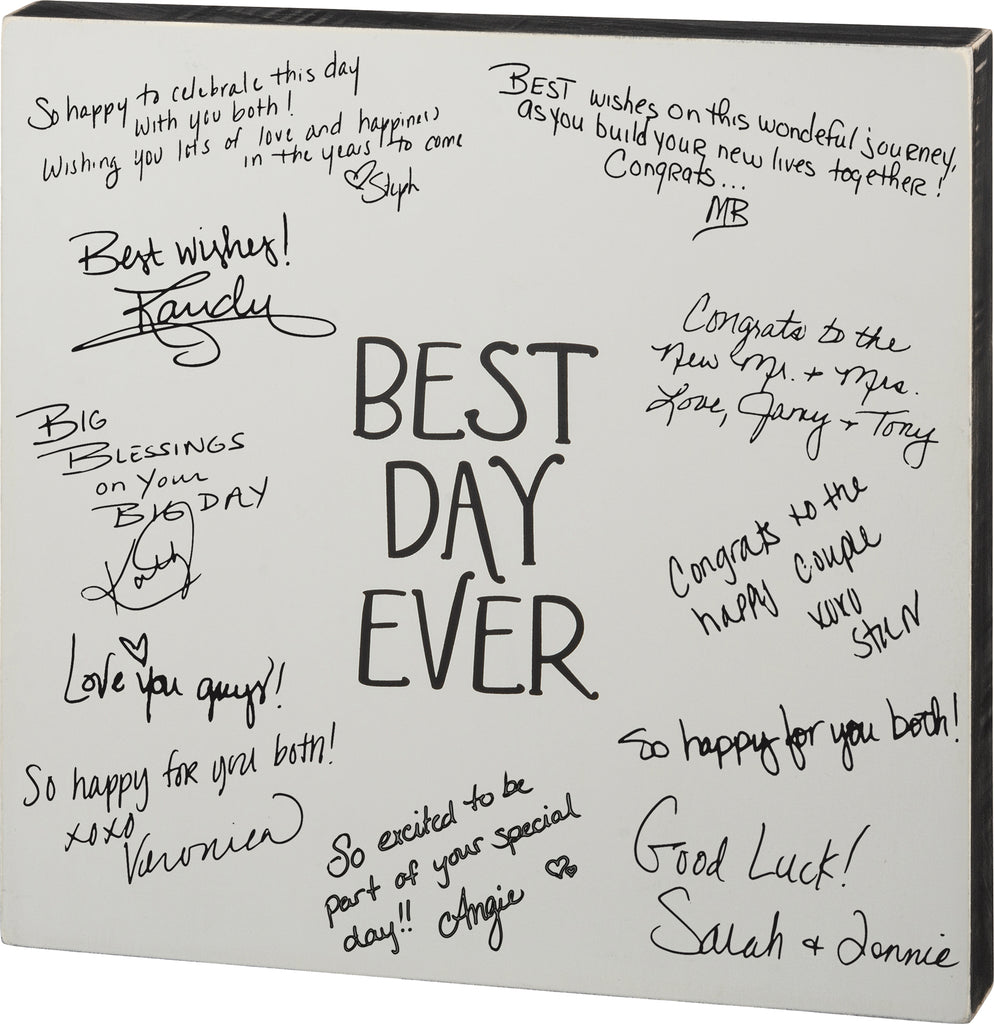 So happy to celebrate this day
with you both!
Wishing you lots of love and happiness
in the years to come
Steph
BEST wishes on this wondeful journey,
as you build your new lives together!
Congrats...
MB
Best wishes!
Randy
Congrats to the
new Mr. + Mrs.
Love, + Tony
BIG
BLESSINGS
on your
BIG DAY
Kathy
BEST
DAY
EVER
Congrats to the
happy couple
xoxo
Love you guys!
So happy for you both!
So happy for you both!
xoxo
Veronica
So excited to be
part of your special
day!! Angie
Good Luck!
Sarah +